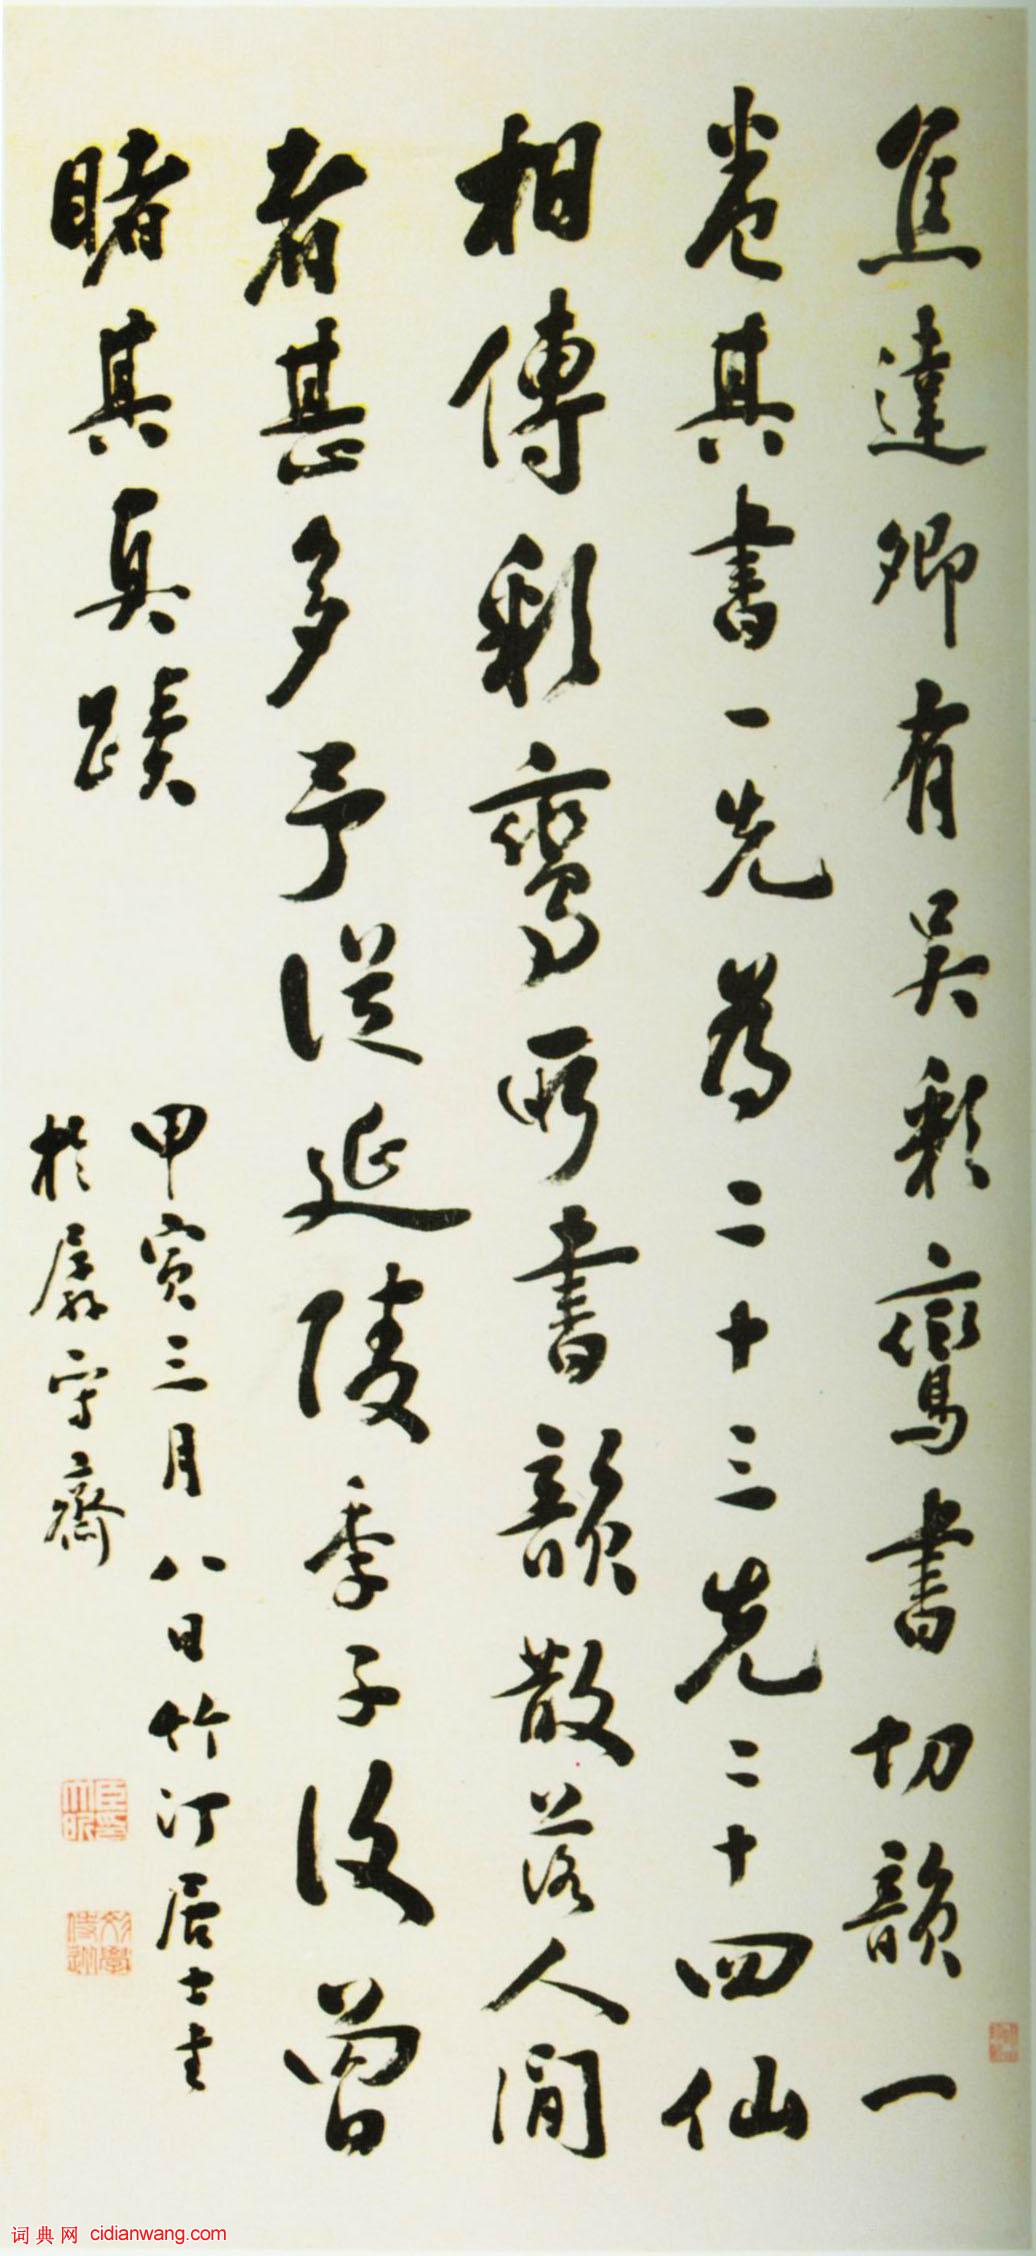 焦達卿有吳彩鸞書切韻一
卷其書一先為二十三先二十四仙
相傳彩鸞所書韻散落人間
者甚多予從延陵季子後曾
睹其真蹟
甲寅三月八日竹汀居士書
於孱守齋
词典网 cidianwang.com